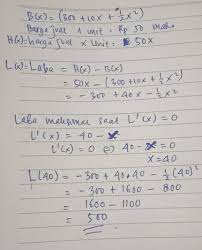 B(x) = (300 + 10x + ½x²)
Harga jual 1 unit = Rp 50
H(x) = harga jual x unit = 50x
L(x) = Laba = H(x) - B(x)
= 50x - (300 + 10x + ½x²)
= -300 + 40x - ½x²
Laba maksimum saat L'(x) = 0
L'(x) = 40 - x
L'(x) = 0 ⇔ 40 - x = 0
x = 40
L(40) = -300 + 40.40 - ½(40)²
= -300 + 1600 - 800
= 1600 - 1100
= 500